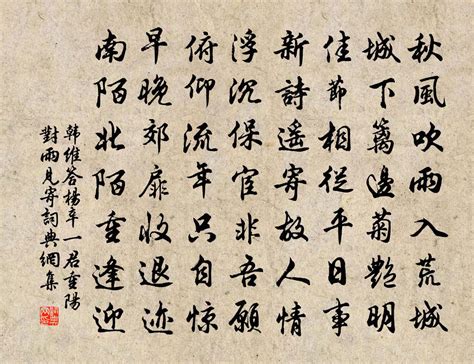 秋風吹雨入荒城
城下籬邊菊艷明
佳節相從平日事
新詩遙寄故人情
浮沉保宦非吾願
俯仰流年只自惊
早晚郊扉收退迹
南陌北陌重逢迎
韩維答楊卒一君重陽
對雨見寄詞典網集